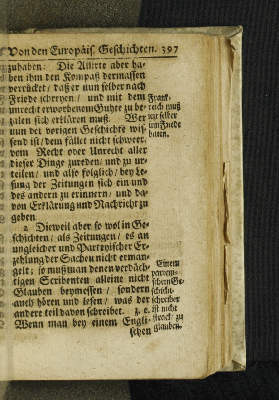 Von den Europäis. Geschichten. 397
zuhaben: Die Alliirte aber ha-
ben ihm den Kompaß dermassen
verrückt / daß er nun selber nach
Friede schreyen / und mit dem
unrecht erworbenem Guhte zu be-
zalen sich erklären muß. Wer
nun der vorigen Geschichte wis-
send ist / dem fället nicht schweer,
vom Recht oder Unrecht aller
dieser Dinge zureden / und zu ur-
teilen / und also folglich / bey Le-
sung der Zeitungen sich ein und
des andern zu erinnern / und da-
von Erklärung und Nachricht zu
geben
Frank-
reich muß
itzt selber
um Friede
bitten.
2 Dieweil aber so wol in Ge-
schichten / als Zeitungen / es an
ungleicher und Parteyischer Er-
zehlung der Sachen nicht erman-
gelt; so muß man denen verdäch-
tigen Scribenten alleine nicht
Glauben beymessen / sondern
auch hören und lesen / was der
andere teil davon schreibet. z. e.
Wenn man bey einem Engli-
schen
Einem
parteyi-
schem Ge-
schicht-
schreiber
ist nicht
stracks zu
glauben.